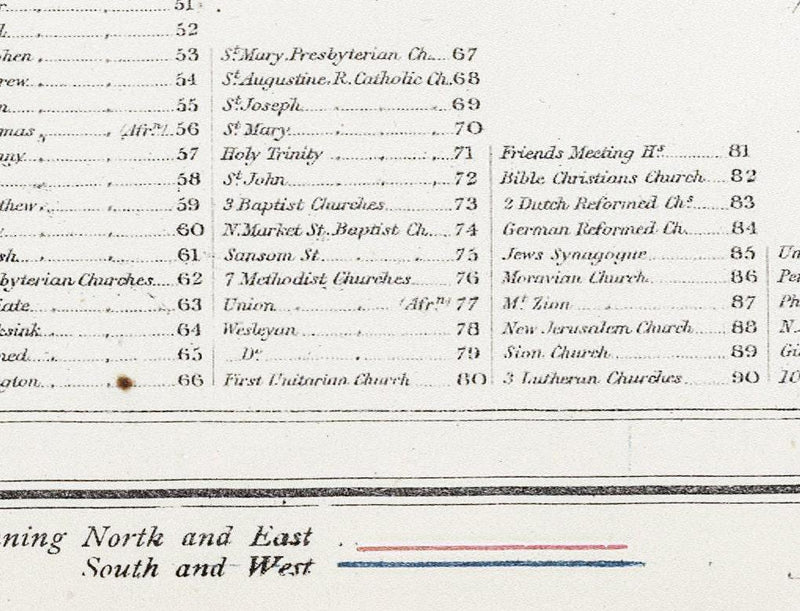 51
52
53
54
55
(Afrn) 56
57
58
59
60
61
Churches 62
63
64
65
66
St Mary Presbyterian Ch. 67
St Augustine, R. Catholic Ch. 68
St Joseph 69
St Mary 70
Holy Trinity 71
St John 72
3 Baptist Churches 73
N. Market St. Baptist Ch. 74
Sansom St. 75
7 Methodist Churches 76
Union (Afrn) 77
Wesleyan 78
Do 79
First Unitarian Church 80
Friends Meeting Hs 81
Bible Christians Church 82
2 Dutch Reformed Chs 83
German Reformed Ch. 84
Jews Synagogue 85
Moravian Church 86
Mt Zion 87
New Jerusalem Church 88
Sion Church 89
3 Lutheran Churches 90
N.
10
North and East
South and West